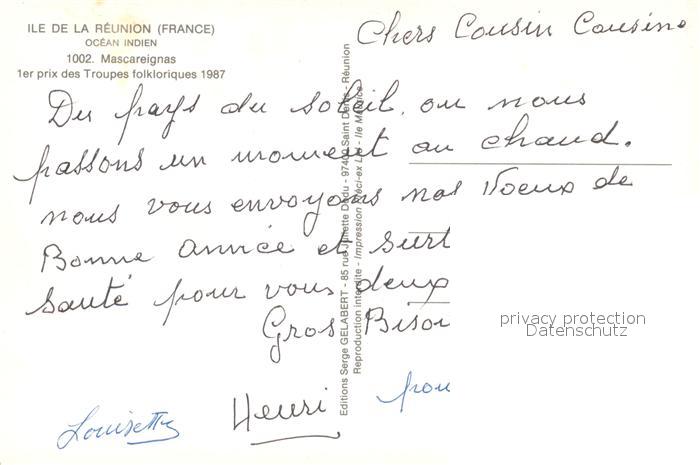 ILE DE LA RÉUNION (FRANCE)
OCÉAN INDIEN
1002. Mascareignas
1er prix des Troupes folkloriques 1987
Chers Cousin Cousine
Du pays du soleil, ou nous
passons un moment au chaud.
nous vous envoyons nos Voeux de
Bonne Année et surt
santé pour vous deux
Gros Bisou
Louisette
Henri
pou
Editions Serge GELABERT - 85 rue Juliette Dodu - 97400 Saint Denis - Réunion
Reproduction interdite - Impression Préci-ex Ltd - Ile Maurice
privacy protection
Datenschutz